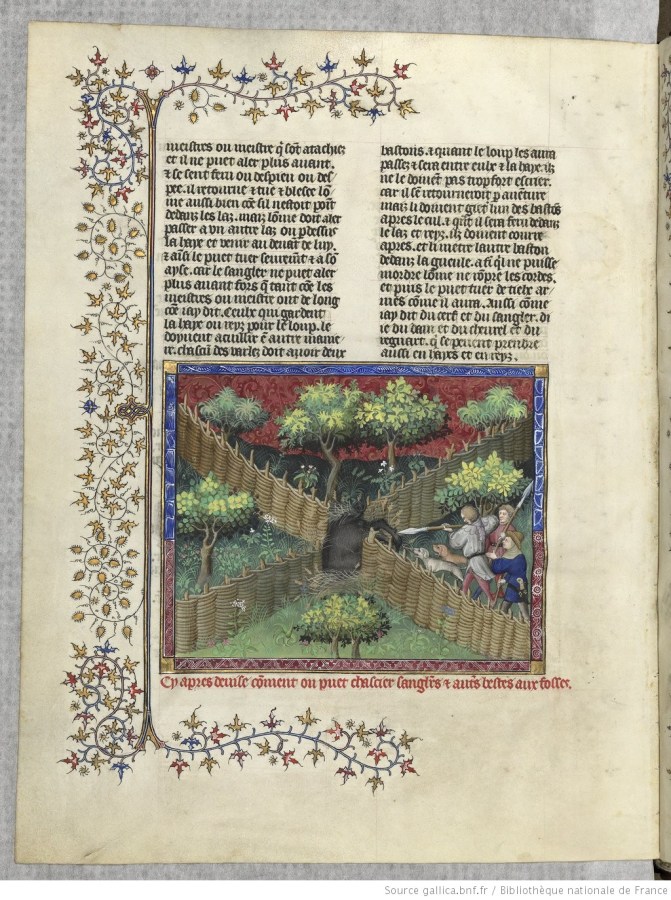 meistres ou meistre q̃ sõt atachiez
et il ne puet aler plus auant.
& se sent feru ou despieu ou des
pee. il retourne & tue & blece lõ
me aussi bien cõe sil nestoit point
dedanz les laz. mais lõme doit aler
passer a vn autre laz ou p̲dessus
la haye et venir au deuãt de luy.
& ainsi le puet tuer seuremẽt & a sõ
ayse. car le sanglier ne puet aler
plus auant fors q̃ tant cõe les
meistres ou meistre ont de long
cõe iay dit. Ceulx qui gardent
la haye ou reyz pour le loup. le
doyuent acuillir ẽ autre manie
re. chascũ des varlez doit auoir deux
bastons. & quant le loup les aura
passez & sera entre eulx & la haye. ilz
ne le doiuẽt pas trop fort escrier.
car il sẽ retourneroit p̲ auẽture
mais li doiuent giet lun des bastõs
apres le cul. & quãt il sera feru dedanz
le laz et reyz. ilz doiuent courre
apres. et li metre lautre baston
dedanz la gueule. a fĩ q̃l ne puisse
mordre lõme ne rõpre les cordes.
et puis le puet tuer de tiele ar
mes cõme il aura. Aussi cõme
iay dit du cerf et du sanglier. di
ie du dain et du cheurel et du
regnart. q̃ se peuent prendre
aussi en hayes et en reyz.
Cy apres deuise cõment on puet chascier sangliers & autres bestes aux fosses.
Source gallica.bnf.fr / Bibliothèque nationale de France